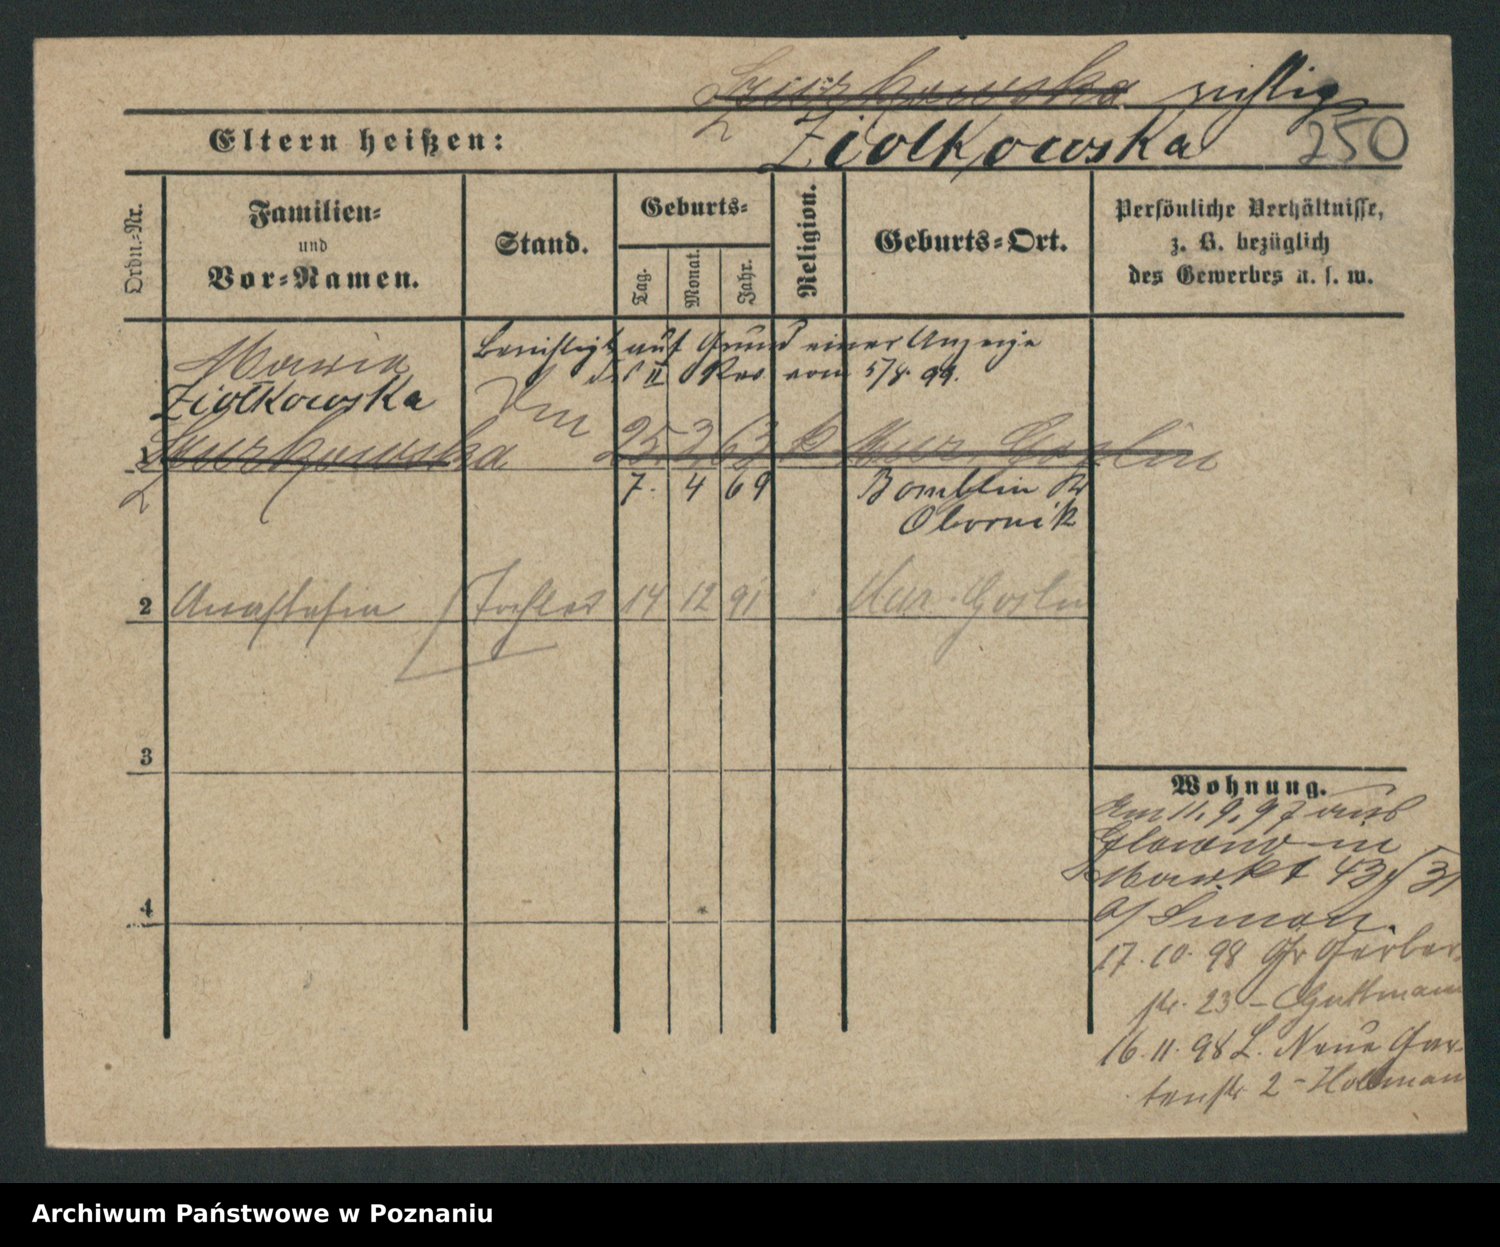 Szurkowska richtig
Eltern heißen: Ziolkowska 250
Ordn.-Nr.
Familien-
und
Vor-Namen.
Stand.
Geburts-
Tag.
Monat.
Jahr.
Religion.
Geburts-Ort.
Persönliche Verhältnisse,
z. B. bezüglich
des Gewerbes u. s. w.
Maria
Ziolkowska
Berichtigt auf Grund einer Anzeige
d. II Rev vom 5/8. 99.
1 Szurkowska 25 3 63 k Mur. Goslin
7. 4 69 Bomblin Kr
Obornik
2 Anastasia Tochter 14 12 91 Mur. Goslin
3
4
Wohnung.
Am 11. 9. 97 aus
Glowno in
Markt 43
b/ Simon.
17. 10. 98 Gr Gerber
str. 23 - Guttmann
16. 11. 98 L. Neue Gar-
tenstr 2 -
Archiwum Państwowe w Poznaniu